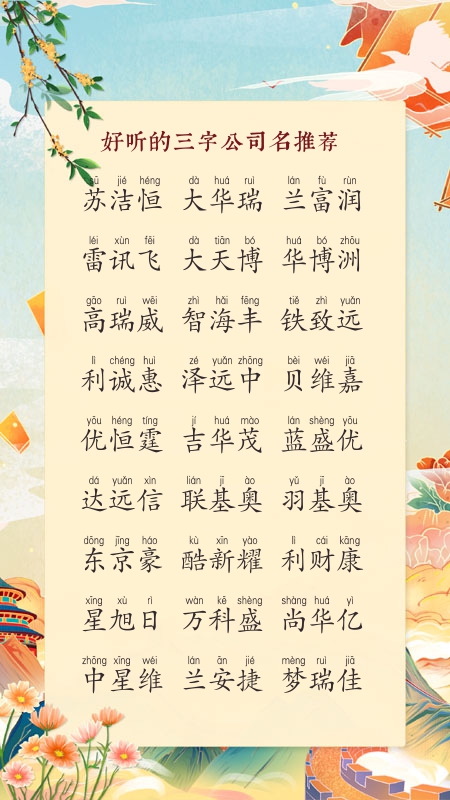 好听的三字公司名推荐
sū jié héng dà huá ruì lán fù rùn
苏洁恒 大华瑞 兰富润
léi xùn fēi dà tiān bó huá bó zhōu
雷讯飞 大天博 华博洲
gāo ruì wēi zhì hǎi fēng tiě zhì yuǎn
高瑞威 智海丰 铁致远
lì chéng huì zé yuǎn zhōng bèi wéi jiā
利诚惠 泽远中 贝维嘉
yōu héng tíng jí huá mào lán shèng yōu
优恒霆 吉华茂 蓝盛优
dá yuǎn xìn lián jī ào yǔ jī ào
达远信 联基奥 羽基奥
dōng jīng háo kù xīn yào lì cái kāng
东京豪 酷新耀 利财康
xīng xù rì wàn kē shèng shàng huá yì
星旭日 万科盛 尚华亿
zhōng xīng wéi lán ān jié mèng ruì jiā
中星维 兰安捷 梦瑞佳